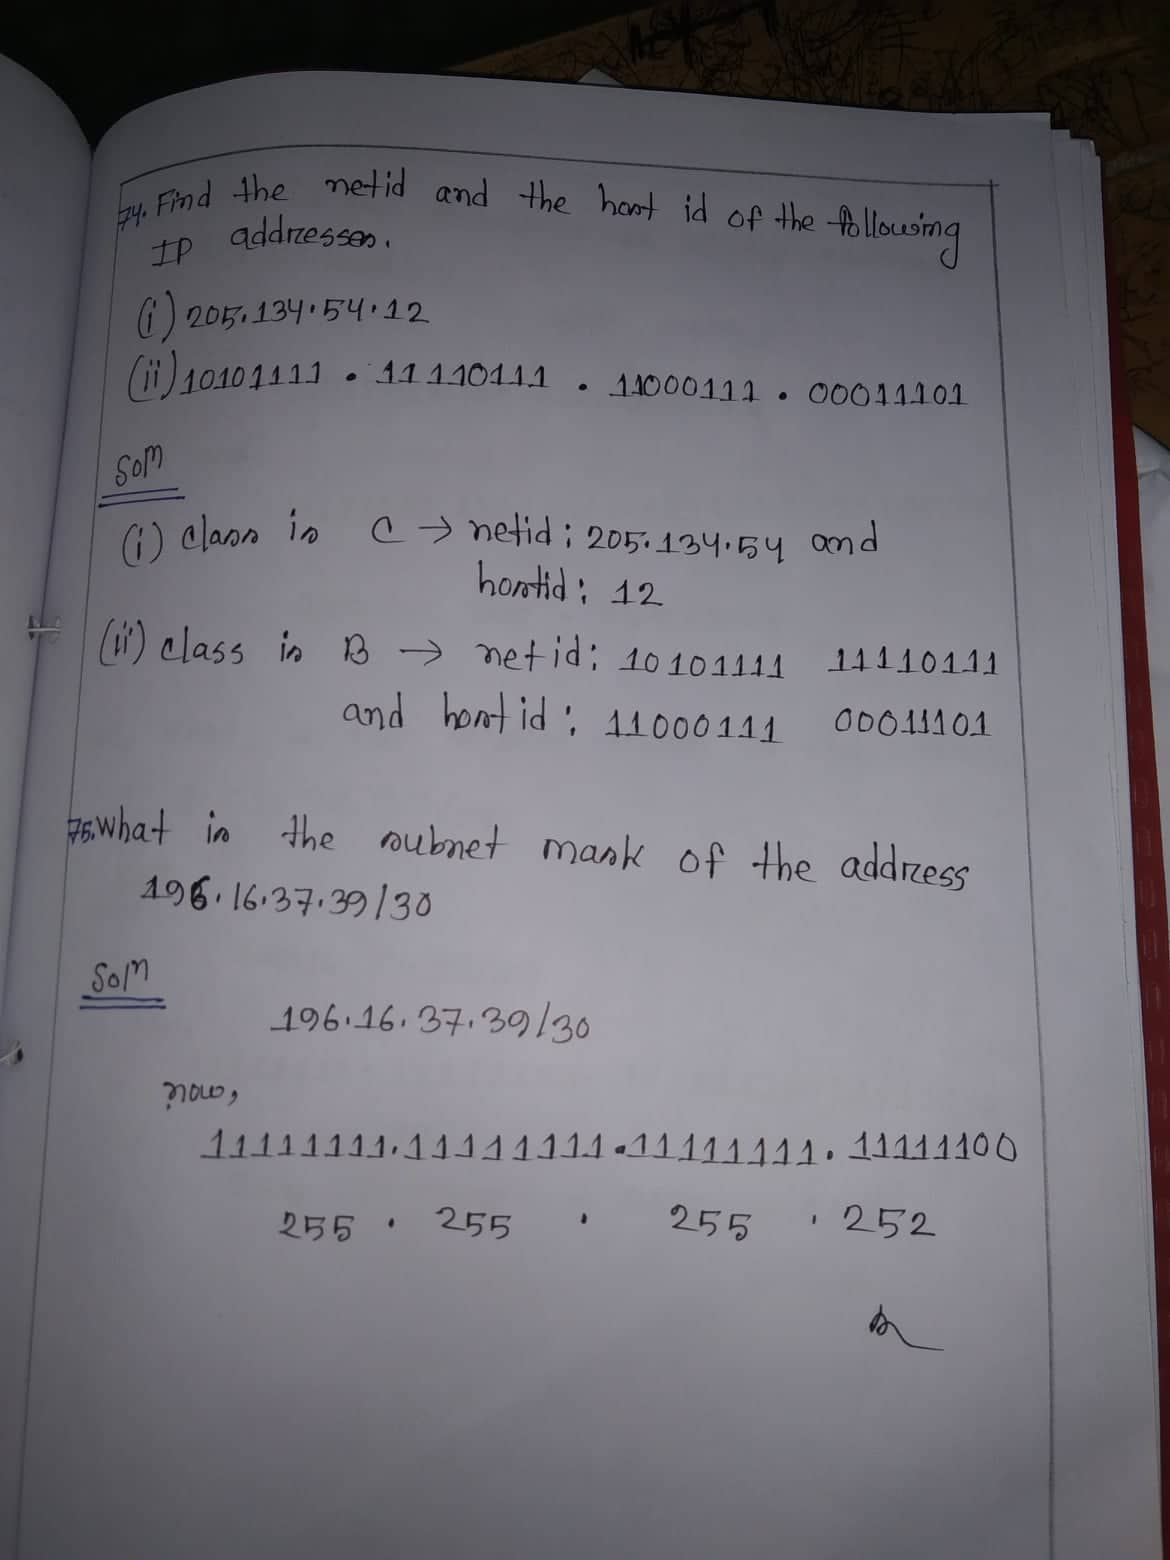 74. Find the netid and the host id of the following
IP addresses.
(i) 205.134.54.12
(ii) 10101111 . 11110111 . 11000111 . 00011101
Soln
(i) class is C → netid: 205.134.54 and
hostid: 12
(ii) class is B → netid: 10101111 11110111
and host id: 11000111 00011101
75. What is the subnet mask of the address
196.16.37.39/30
Soln
196.16.37.39/30
now,
11111111.11111111.11111111.11111100
255 . 255 . 255 . 252